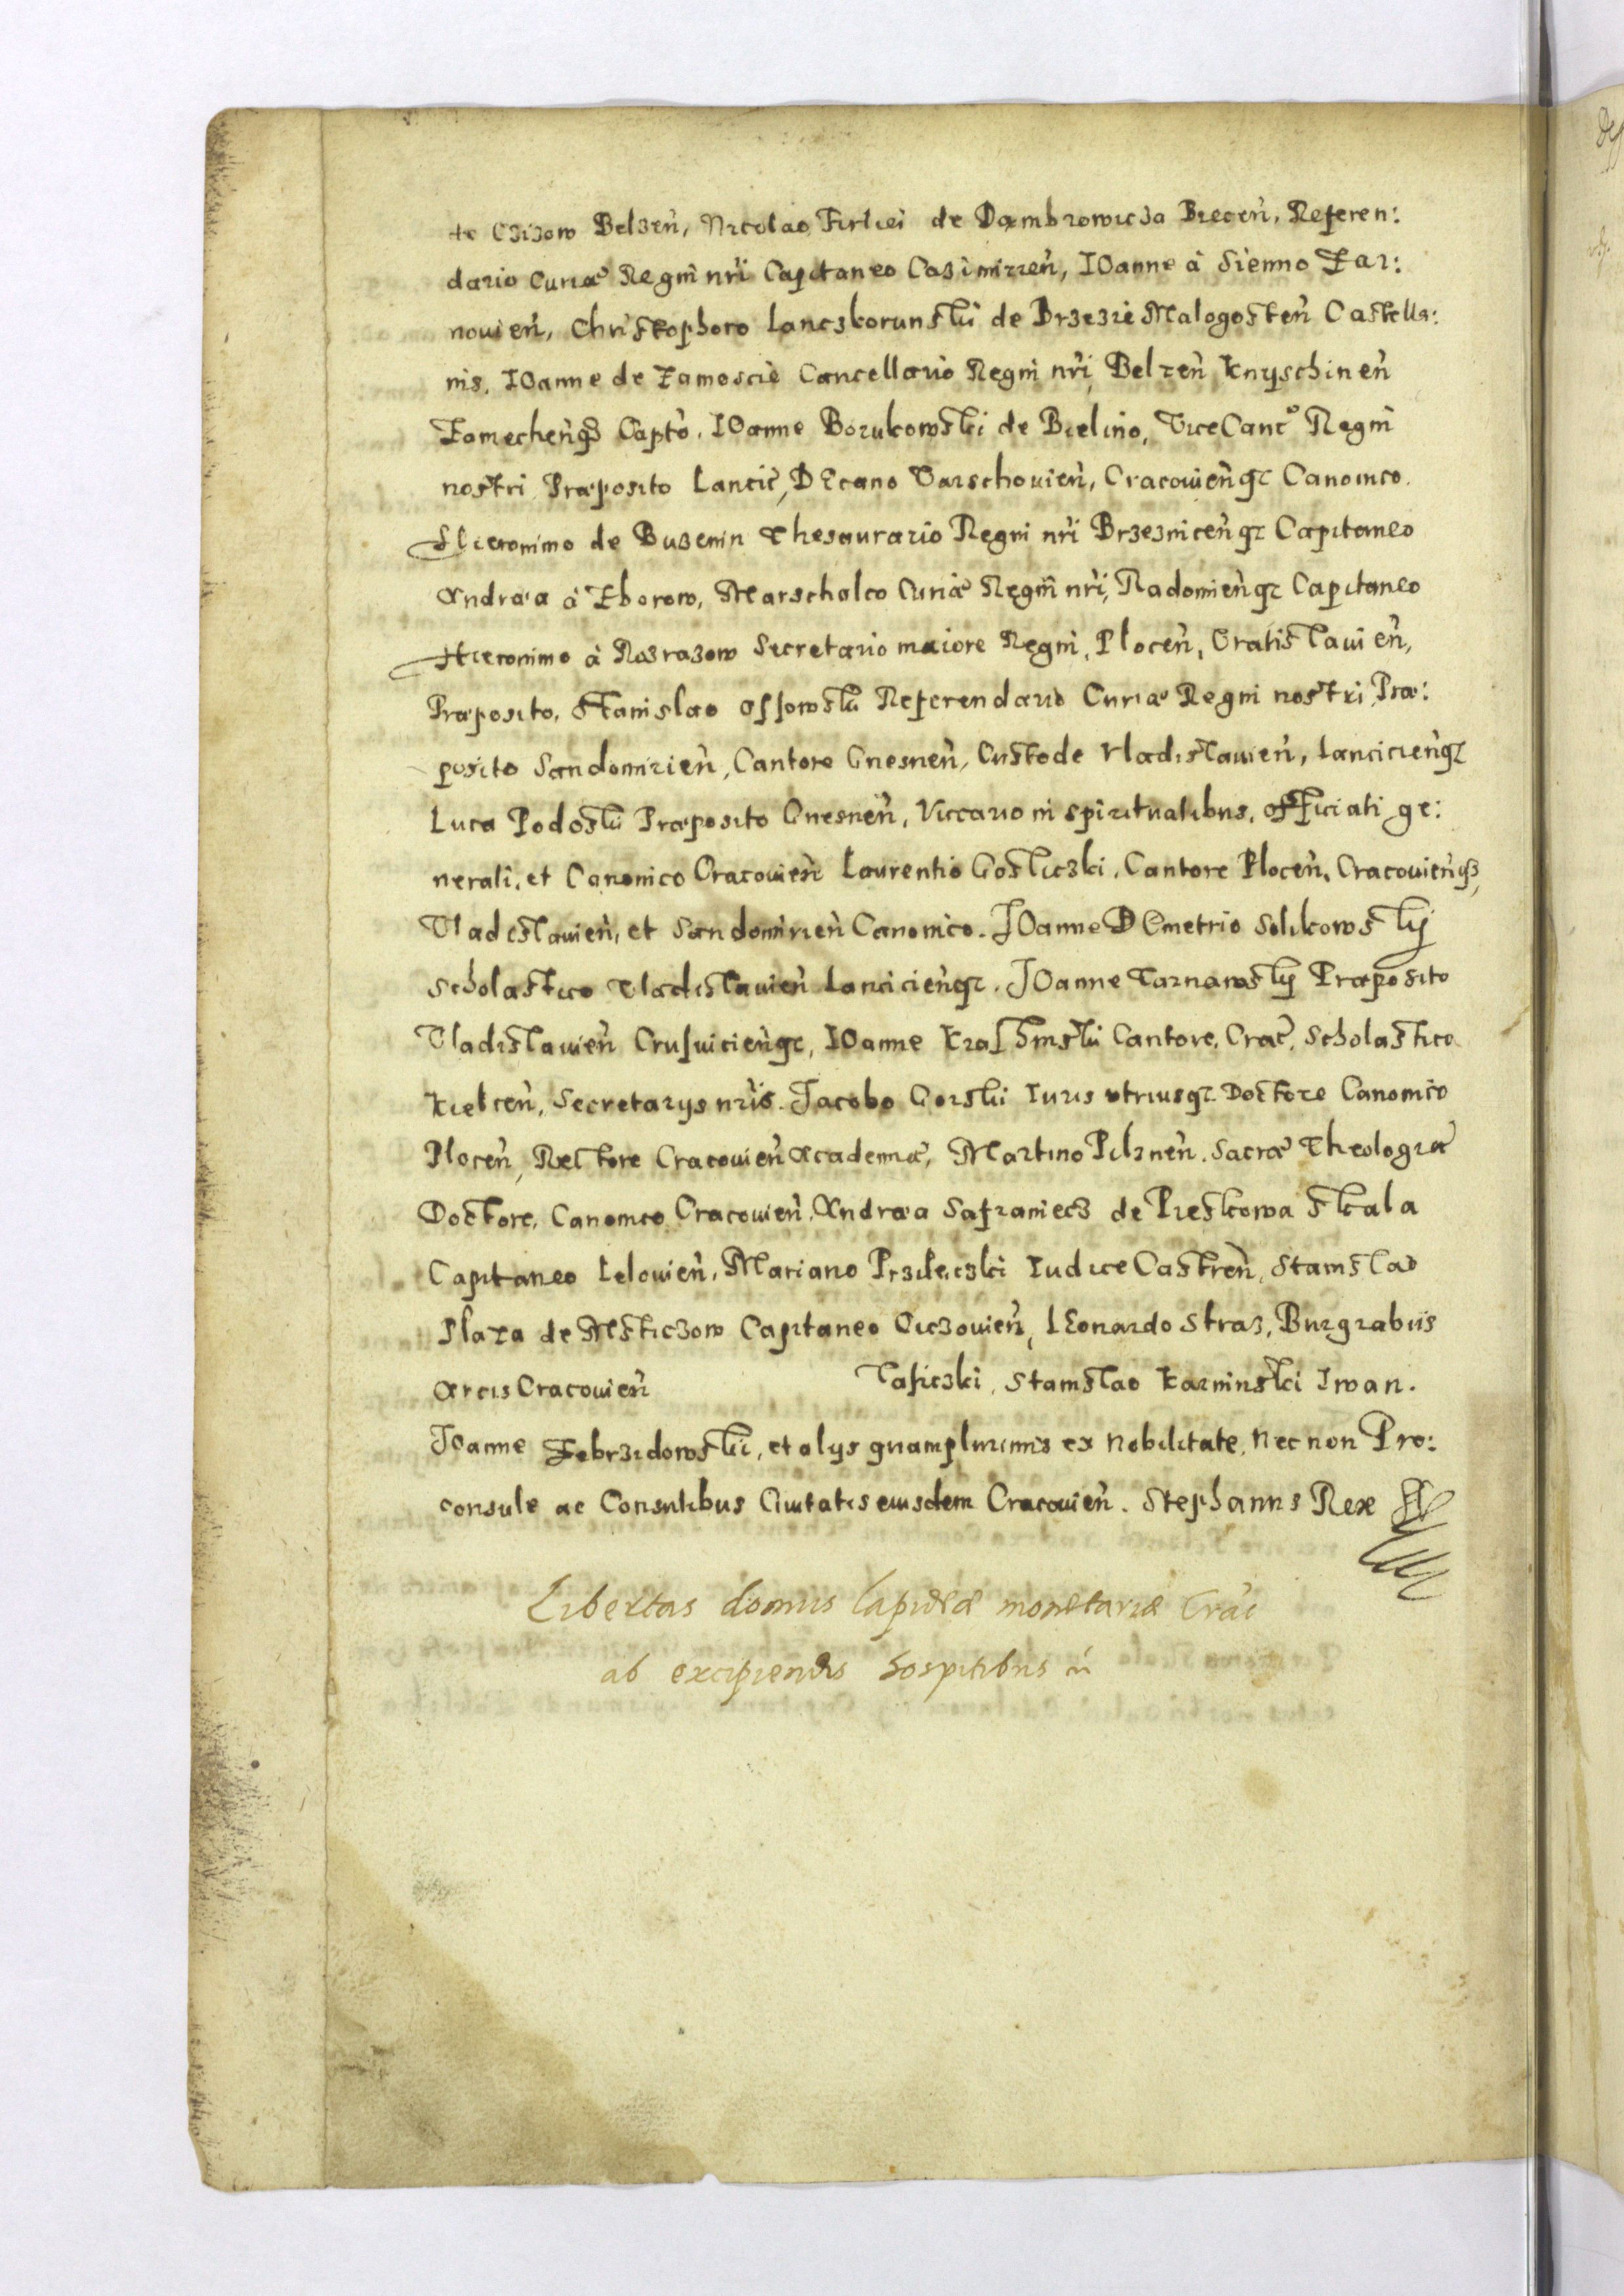 de Czizow Belzen̄, Nicolao Firliei de Dambrowicza Biecen̄, Referen:
dario Curiæ Regni nr̄i Capitaneo Casimirien̄, IOanne à Sienno Zar:
novien̄, Christophoro Lanczkorunskii de Brzezie Malogosten̄ Castella:
nis, IOanne de Zamoscie Cancellario Regni nr̄i, Belzen̄ Knyschinen̄
Zamechen̄q̃ Capto, IOanne Borukowski de Bielino, ViceCanc̄o Regni
nostri Præposito Lancic̄, DEcano Varschovien̄, Cracovien̄q̃ Canonico.
Hieronimo de Buzenin Thesaurario Regni nr̄i Brzeznicen̄q̃ Capitaneo
Andræa à Zborow, Marschalco Curiæ Regni nr̄i, Radomien̄q̃ Capitaneo
Hieronimo à Rozrazow Secretario maiore Regni, Plocen̄, Vratislavien̄,
Præposito, Stanislao Ossowskii Referendario Curiæ Regni nostri, Præ:
posito Sandomirien̄, Cantore Gnesnen̄, Custode Vladislavien̄, Lancicien̄q̃
Luca Podoskii Præposito Gnesnen̄, Viccario in spiritualibus, officiati ge:
nerali, et Canonico Cracovien̄ Laurentio Gosliczki, Cantore Plocen̄, Cracovien̄q̃,
Vladislavien̄, et Sandomirien̄ Canonico. IOanne DEmetrio Solikowskij
Scholastico Vladislavien̄ Lancicien̄q̃. IOanne Tarnawskij Præposito
Vladislavien̄ Crusvicien̄q̃, IOanne Krasihnskii Cantore, Crac̄, Scholastico
Kielcen̄, Secretarys nr̄is. Jacobo Gorskii Iuris utriusq̃ Doctore Canonico
Plocen̄, Rectore Cracovien̄ Academiæ, Martino Pilznen̄. Sacræ Theologiæ
Doctore, Canonico Cracovien̄, Andræa Safraniecz de Pieskowa Skala
Capitaneo Lelovien̄, Mariano Przileczki Iudice Castren̄, Stanislao
Plaza de Msticzow Capitaneo Oiczovien̄, LEonardo Straz, Burgrabiis
Arcis Cracovien̄ Lasiczki, Stanislao Karninski Iwan.
IOanne Zebrzidowskii, et alys quamplurimis ex Nobilitate, Nec non Pro:
consule ac Consulibus Civitatis eiusdem Cracovien̄. Stephanus Rex
Libertas domus lapideæ monetariæ Crac̄
ab excipiendis hospitibus